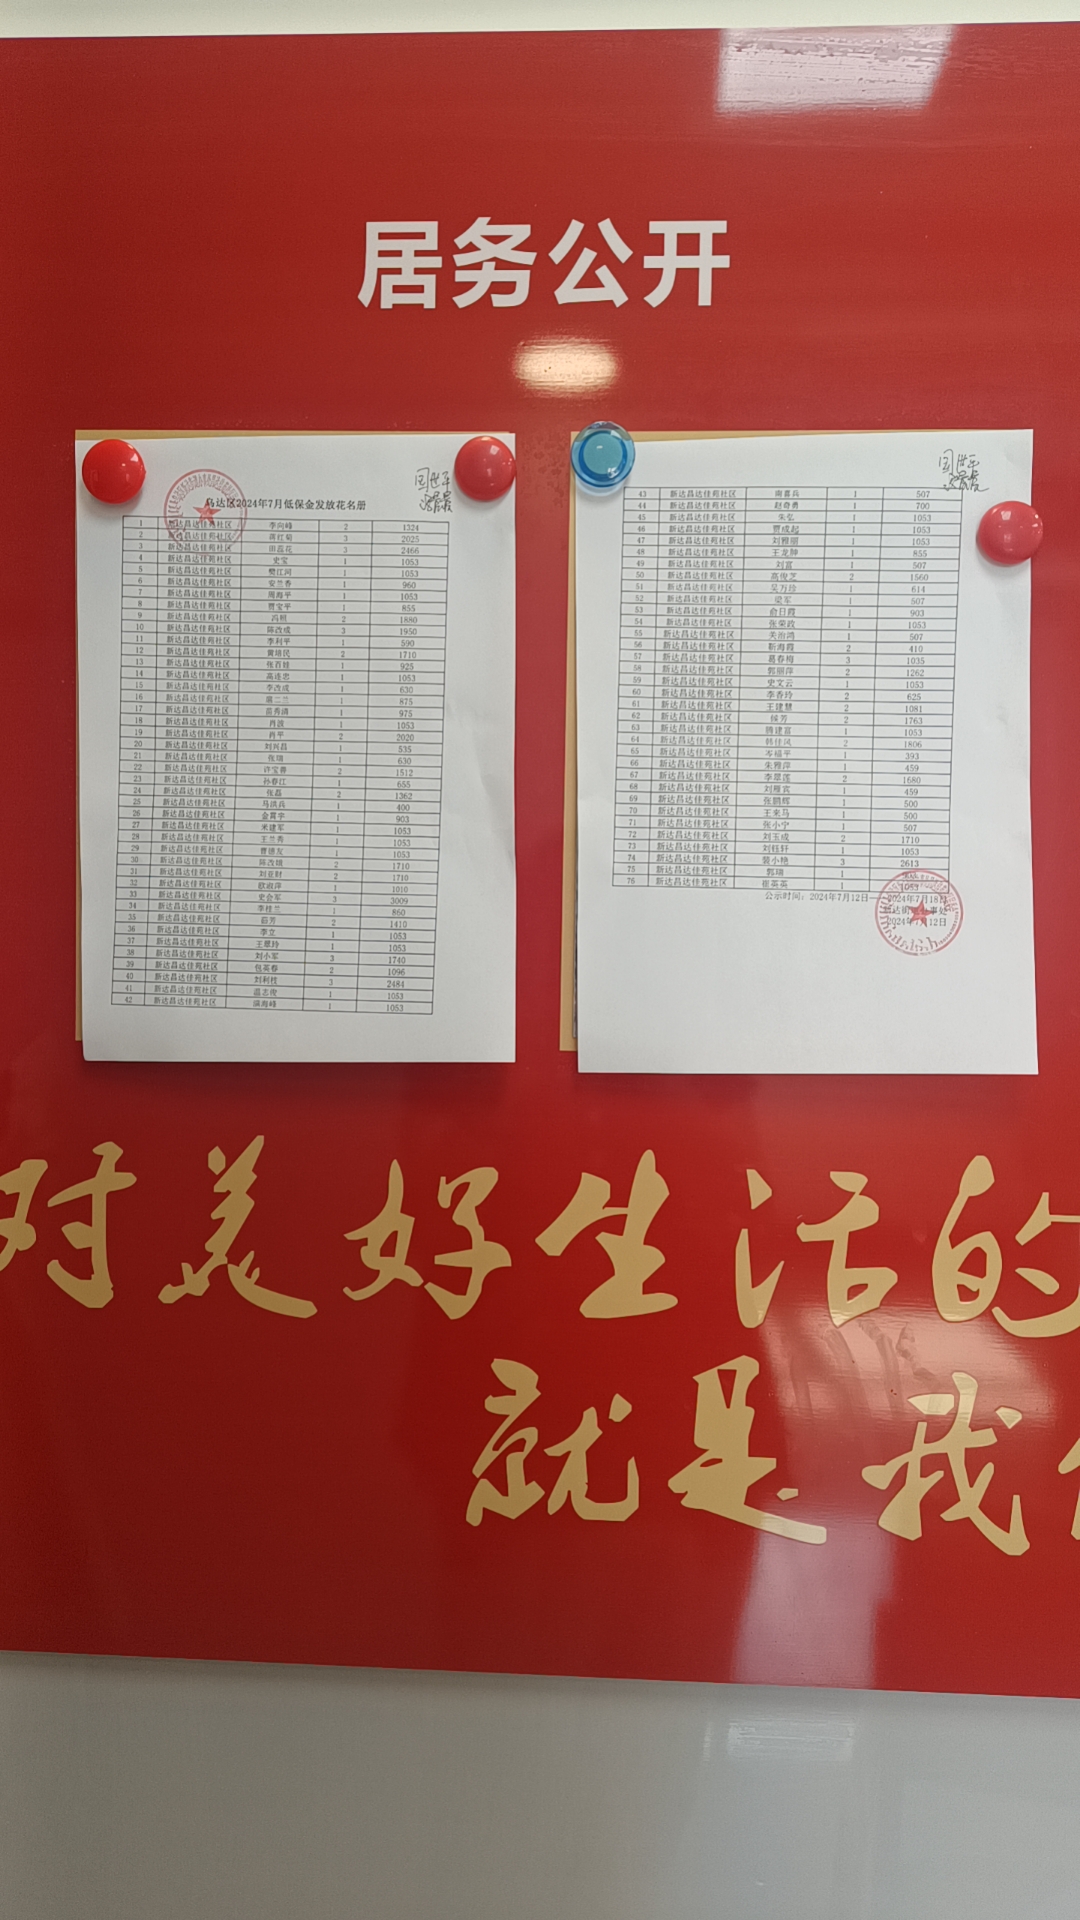 居务公开
乌达区2024年7月低保金发放花名册
1 新达昌达佳苑社区 李向峰 2 1324
2 新达昌达佳苑社区 蒋红菊 3 2025
3 新达昌达佳苑社区 田蕊花 3 2466
4 新达昌达佳苑社区 史宝 1 1053
5 新达昌达佳苑社区 樊江河 1 1053
6 新达昌达佳苑社区 安兰香 1 960
7 新达昌达佳苑社区 周海平 1 1053
8 新达昌达佳苑社区 贾宝平 1 855
9 新达昌达佳苑社区 冯照 2 1880
10 新达昌达佳苑社区 陈改成 3 1950
11 新达昌达佳苑社区 李利平 1 590
12 新达昌达佳苑社区 黄培民 2 1710
13 新达昌达佳苑社区 张百娃 1 925
14 新达昌达佳苑社区 高连忠 1 1053
15 新达昌达佳苑社区 李改成 1 630
16 新达昌达佳苑社区 二兰 1 875
17 新达昌达佳苑社区 苗秀清 1 975
18 新达昌达佳苑社区 肖波 1 1053
19 新达昌达佳苑社区 肖平 2 2020
20 新达昌达佳苑社区 刘兴昌 1 535
21 新达昌达佳苑社区 张瑞 1 630
22 新达昌达佳苑社区 许宝善 2 1512
23 新达昌达佳苑社区 孙春江 1 655
24 新达昌达佳苑社区 张磊 2 1362
25 新达昌达佳苑社区 马洪兵 1 400
26 新达昌达佳苑社区 金贯宇 1 903
27 新达昌达佳苑社区 米建军 1 1053
28 新达昌达佳苑社区 王兰秀 1 1053
29 新达昌达佳苑社区 曹德友 1 1053
30 新达昌达佳苑社区 陈改娥 2 1710
31 新达昌达佳苑社区 刘亚财 2 1710
32 新达昌达佳苑社区 欧淑萍 1 1010
33 新达昌达佳苑社区 史会军 3 3009
34 新达昌达佳苑社区 李桂兰 1 860
35 新达昌达佳苑社区 茹芳 2 1410
36 新达昌达佳苑社区 李立 1 1053
37 新达昌达佳苑社区 王翠玲 1 1053
38 新达昌达佳苑社区 刘小军 3 1740
39 新达昌达佳苑社区 包英春 2 1096
40 新达昌达佳苑社区 刘利枝 3 2484
41 新达昌达佳苑社区 温志俊 1 1053
42 新达昌达佳苑社区 海峰 1 1053
43 新达昌达佳苑社区 南喜兵 1 507
44 新达昌达佳苑社区 赵奇勇 1 700
45 新达昌达佳苑社区 朱弘 1 1053
46 新达昌达佳苑社区 贾成起 1 1053
47 新达昌达佳苑社区 刘雅丽 1 1053
48 新达昌达佳苑社区 王龙翀 1 855
49 新达昌达佳苑社区 刘富 1 507
50 新达昌达佳苑社区 高俊芝 2 1560
51 新达昌达佳苑社区 吴万珍 1 614
52 新达昌达佳苑社区 梁军 1 507
53 新达昌达佳苑社区 俞日霞 1 903
54 新达昌达佳苑社区 张荣政 1 1053
55 新达昌达佳苑社区 关治鸿 1 507
56 新达昌达佳苑社区 靳海霞 2 410
57 新达昌达佳苑社区 葛春梅 3 1035
58 新达昌达佳苑社区 郭丽萍 2 1262
59 新达昌达佳苑社区 史文云 1 1053
60 新达昌达佳苑社区 李香玲 2 625
61 新达昌达佳苑社区 王建慧 2 1081
62 新达昌达佳苑社区 候芳 2 1763
63 新达昌达佳苑社区 建富 1 1053
64 新达昌达佳苑社区 韩佳凤 2 1806
65 新达昌达佳苑社区 岑福平 1 393
66 新达昌达佳苑社区 朱雅萍 1 459
67 新达昌达佳苑社区 李翠莲 2 1680
68 新达昌达佳苑社区 刘雁宾 1 459
69 新达昌达佳苑社区 张鹏辉 1 500
70 新达昌达佳苑社区 王来马 1 500
71 新达昌达佳苑社区 张小宁 1 507
72 新达昌达佳苑社区 刘玉成 2 1710
73 新达昌达佳苑社区 刘钰轩 1 1053
74 新达昌达佳苑社区 裴小艳 3 2613
75 新达昌达佳苑社区 郭瑞 1
76 新达昌达佳苑社区 崔英英 1 1053
公示时间：2024年7月12日——2024年7月18日
新达街道办事处
2024年7月12日
对美好生活的
就是我